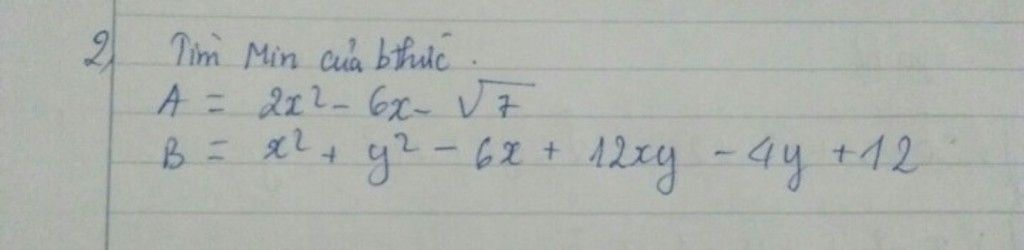 2) Tìm Min của bthức.
A = 2x² - 6x - √7
B = x² + y² - 6x + 12xy - 4y + 12